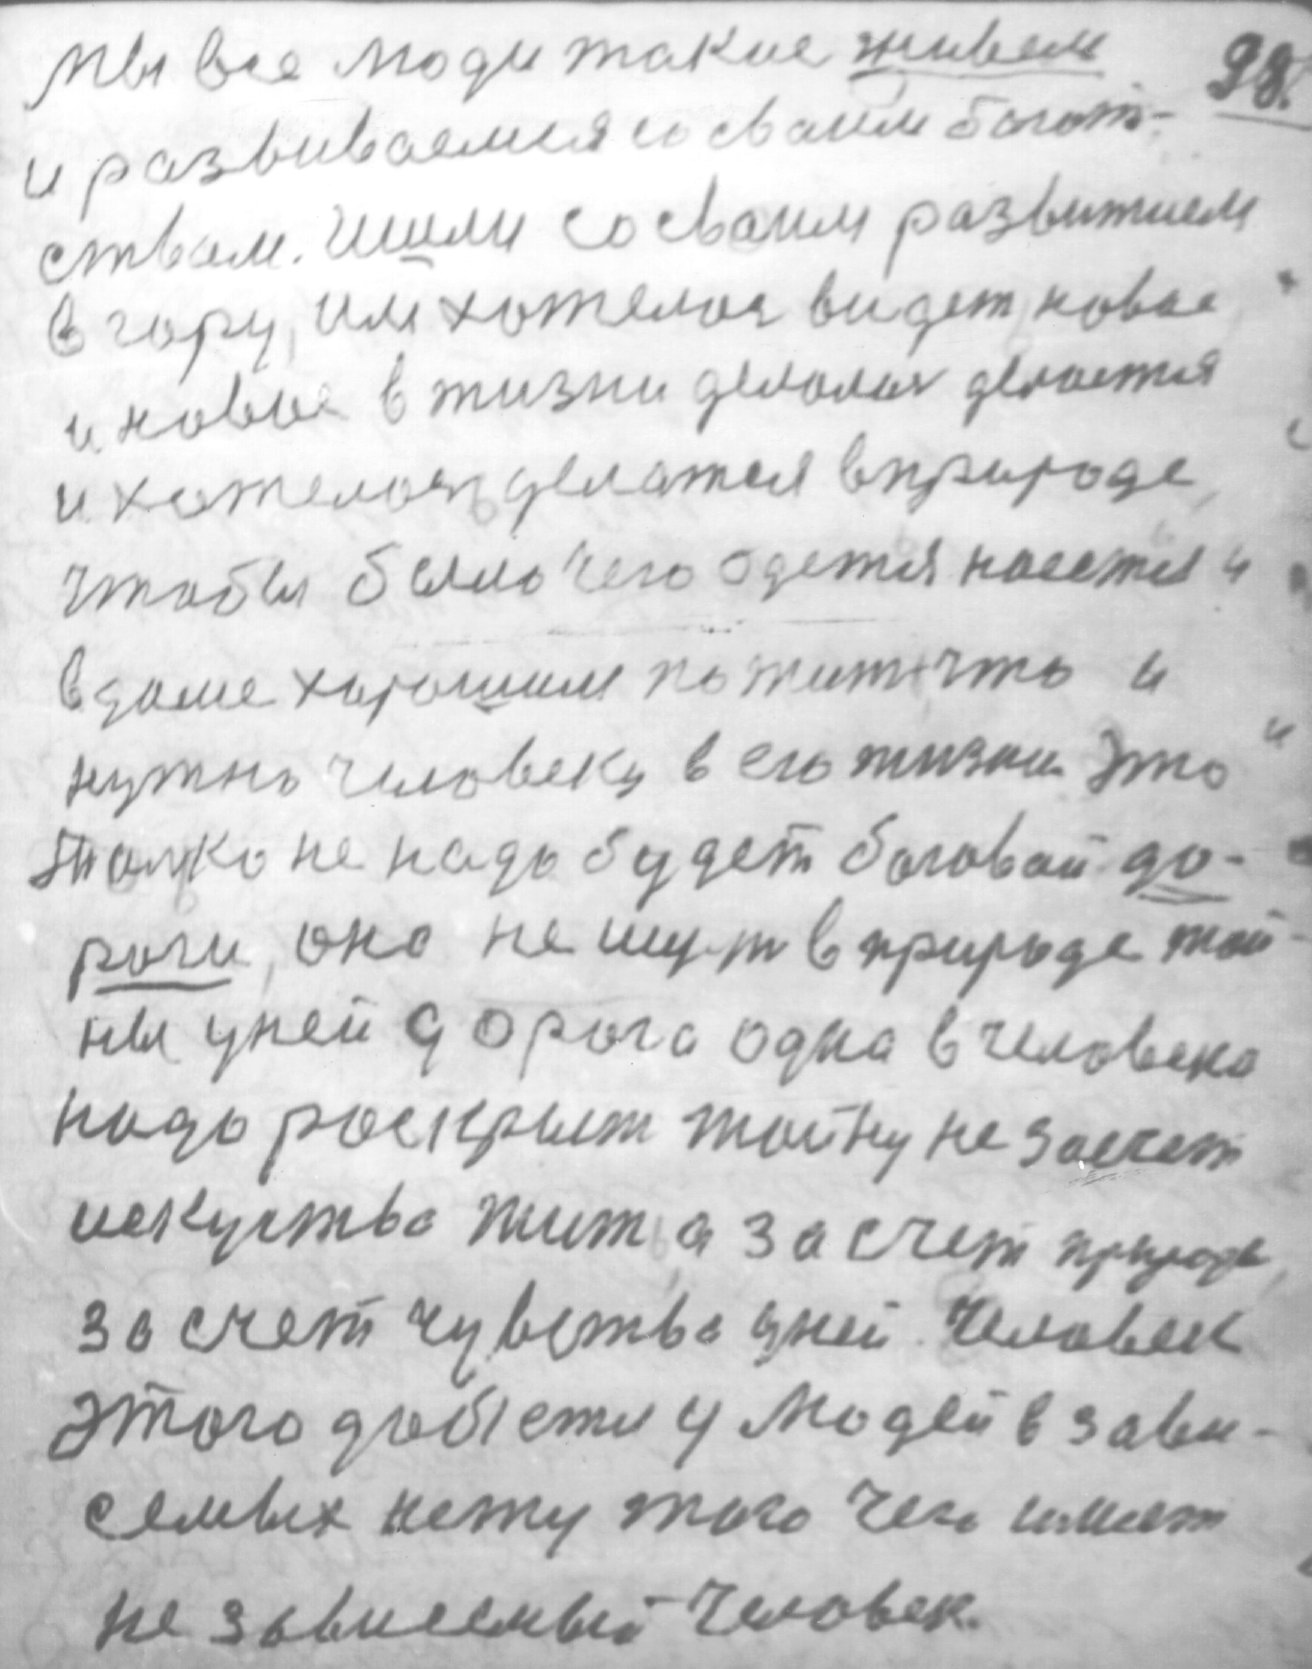 98.
Мы все люди такие живем
и развиваемся со своим богат-
ством. Шли со своим развитием
в гору, им хотелося видет новое
и новое в жизни делалос делается
и хотелось делатся в природе,
чтобы было чего одется наестся и
в доме хорошим пожит, что и
нужно человеку в его жизни. Это
толко не надо будет боговой до-
роги, она не ищут в природе тай
ны у ней дорога одна в человека
надо роскрыт тайну не засчет
искуства жит, а за счет природы,
за счет чувства у ней. Человек
этого добется у людей в зави-
семых нету того чего имеет
не зависемый человек.